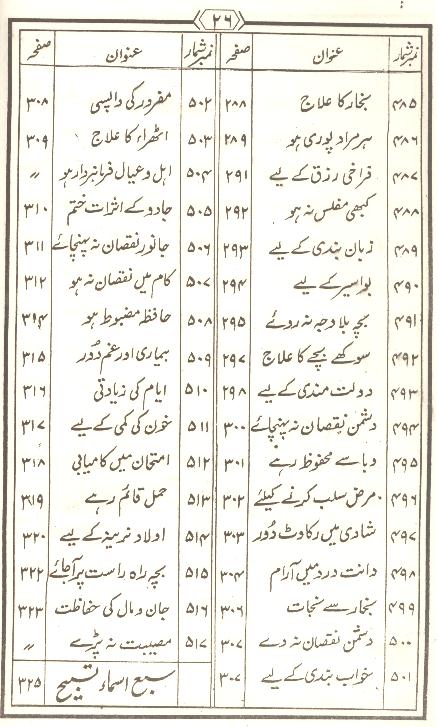 ۲۶
نمبر شمار عنوان صفحہ نمبر شمار عنوان صفحہ
۴۸۵ بخار کا علاج ۲۸۸ ۵۰۲ مفرور کی واپسی ۳۰۸
۴۸۶ ہر مراد پوری ہو ۲۸۹ ۵۰۳ اٹھراء کا علاج ۳۰۹
۴۸۷ فراخی رزق کے لیے ۲۹۱ ۵۰۴ اہل و عیال فرمانبردار ہو 〃
۴۸۸ کبھی مفلس نہ ہو ۲۹۲ ۵۰۵ جادو کے اثرات ختم ۳۱۰
۴۸۹ زبان بندی کے لیے ۲۹۳ ۵۰۶ جانور نقصان نہ پہنچائے ۳۱۱
۴۹۰ بواسیر کے لیے ۲۹۴ ۵۰۷ کام میں نقصان نہ ہو ۳۱۲
۴۹۱ بچہ بلا وجہ نہ روئے ۲۹۵ ۵۰۸ حافظہ مضبوط ہو ۳۱۴
۴۹۲ سوکھے بچے کا علاج ۲۹۷ ۵۰۹ بیماری اور غم دُور ۳۱۵
۴۹۳ دولت مندی کے لیے ۲۹۸ ۵۱۰ ایام کی زیادتی ۳۱۶
۴۹۴ دشمن نقصان نہ پہنچائے ۳۰۰ ۵۱۱ خون کی کمی کے لیے ۳۱۷
۴۹۵ وبا سے محفوظ رہے ۳۰۱ ۵۱۲ امتحان میں کامیابی ۳۱۸
۴۹۶ مرض سلب کرنے کیلئے ۳۰۲ ۵۱۳ حمل قائم رہے ۳۱۹
۴۹۷ شادی میں رکاوٹ دُور ۳۰۳ ۵۱۴ اولاد نرینہ کے لیے ۳۲۰
۴۹۸ دانت درد میں آرام ۳۰۴ ۵۱۵ بچہ راہ راست پر آجائے ۳۲۲
۴۹۹ بخار سے نجات ۳۰۶ ۵۱۶ جان و مال کی حفاظت ۳۲۳
۵۰۰ دشمن نقصان نہ دے ۳۰۷ ۵۱۷ مصیبت نہ پڑے 〃
۵۰۱ خواب بندی کے لیے ۳۰۷ سبع اسماء تسبیح ۳۲۵